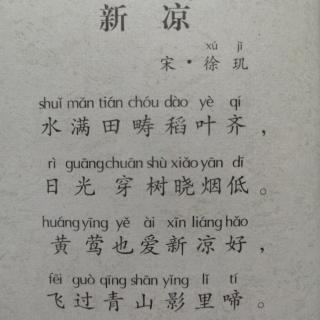 新凉
xú jī
宋·徐玑
shuǐ mǎn tián chóu dào yè qí
水满田畴稻叶齐，
rì guāng chuān shù xiǎo yān dī
日光穿树晓烟低。
huáng yīng yě ài xīn liáng hǎo
黄莺也爱新凉好，
fēi guò qīng shān yǐng lǐ tí
飞过青山影里啼。